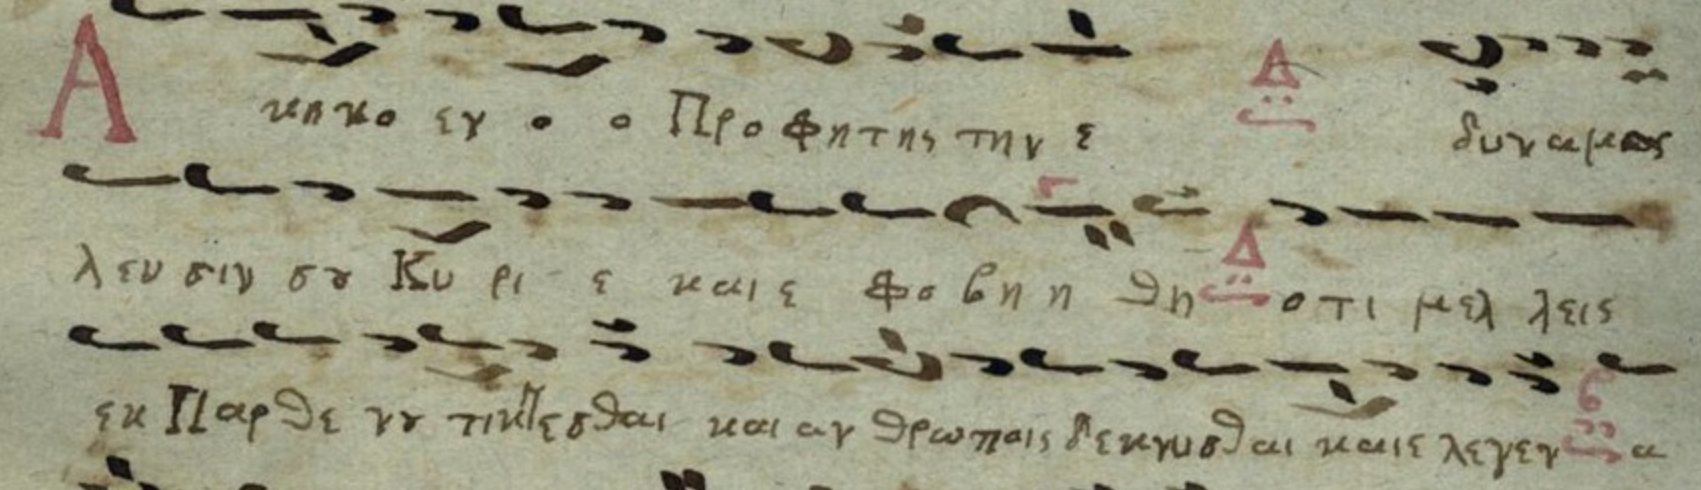 Α κηκο εν ο ο Προφητης την ε Δ δυναμεως
λευ σιν σȣ Κυ ρι ε και ε φο βη η θη Δ ο τι μελ λεις
εκ Παρ θε νȣ τικτεσθαι και αν θρωποις δεικνυσθαι και ε λεγεν α